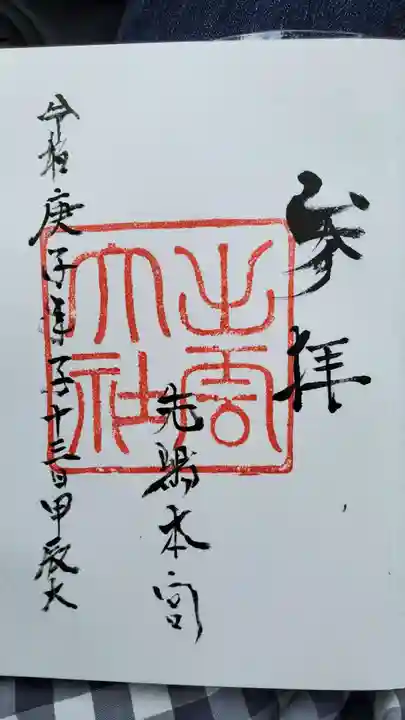 参拝
出雲
大社
先賜本宮
令和庚子年子十三日甲辰大